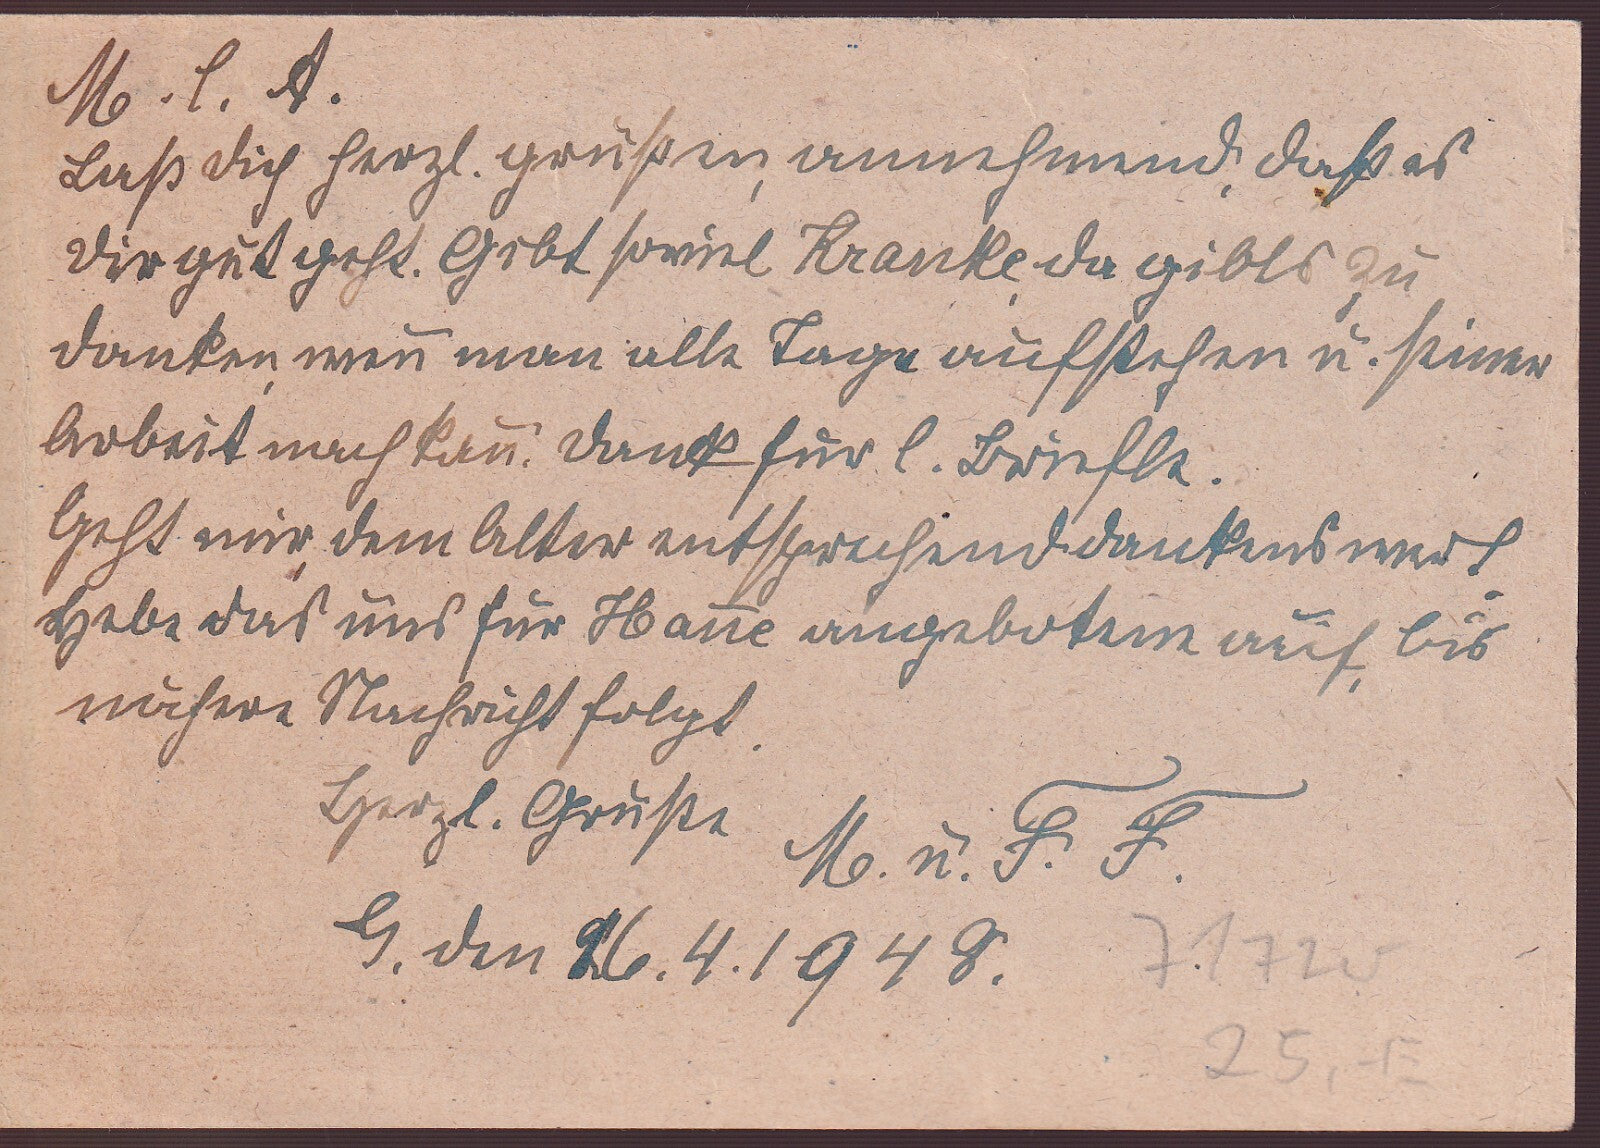 M. l. A.
Laß dich herzl. grüßen, annehmend, daß es
dir gut geht. Gibt soviel Kranke, da gibts zu
danken, weñ man alle Tage aufstehen u. seiner
Arbeit nach kañ. Dank für l. Briefle.
Geht mir, dem Alter entsprechend dankenswert.
Hebe das uns für Hañe angebotene auf, bis
nähere Nachricht folgt.
Herzl. Grüße
M. u. F. F.
G. den 26.4.1948.
25,-